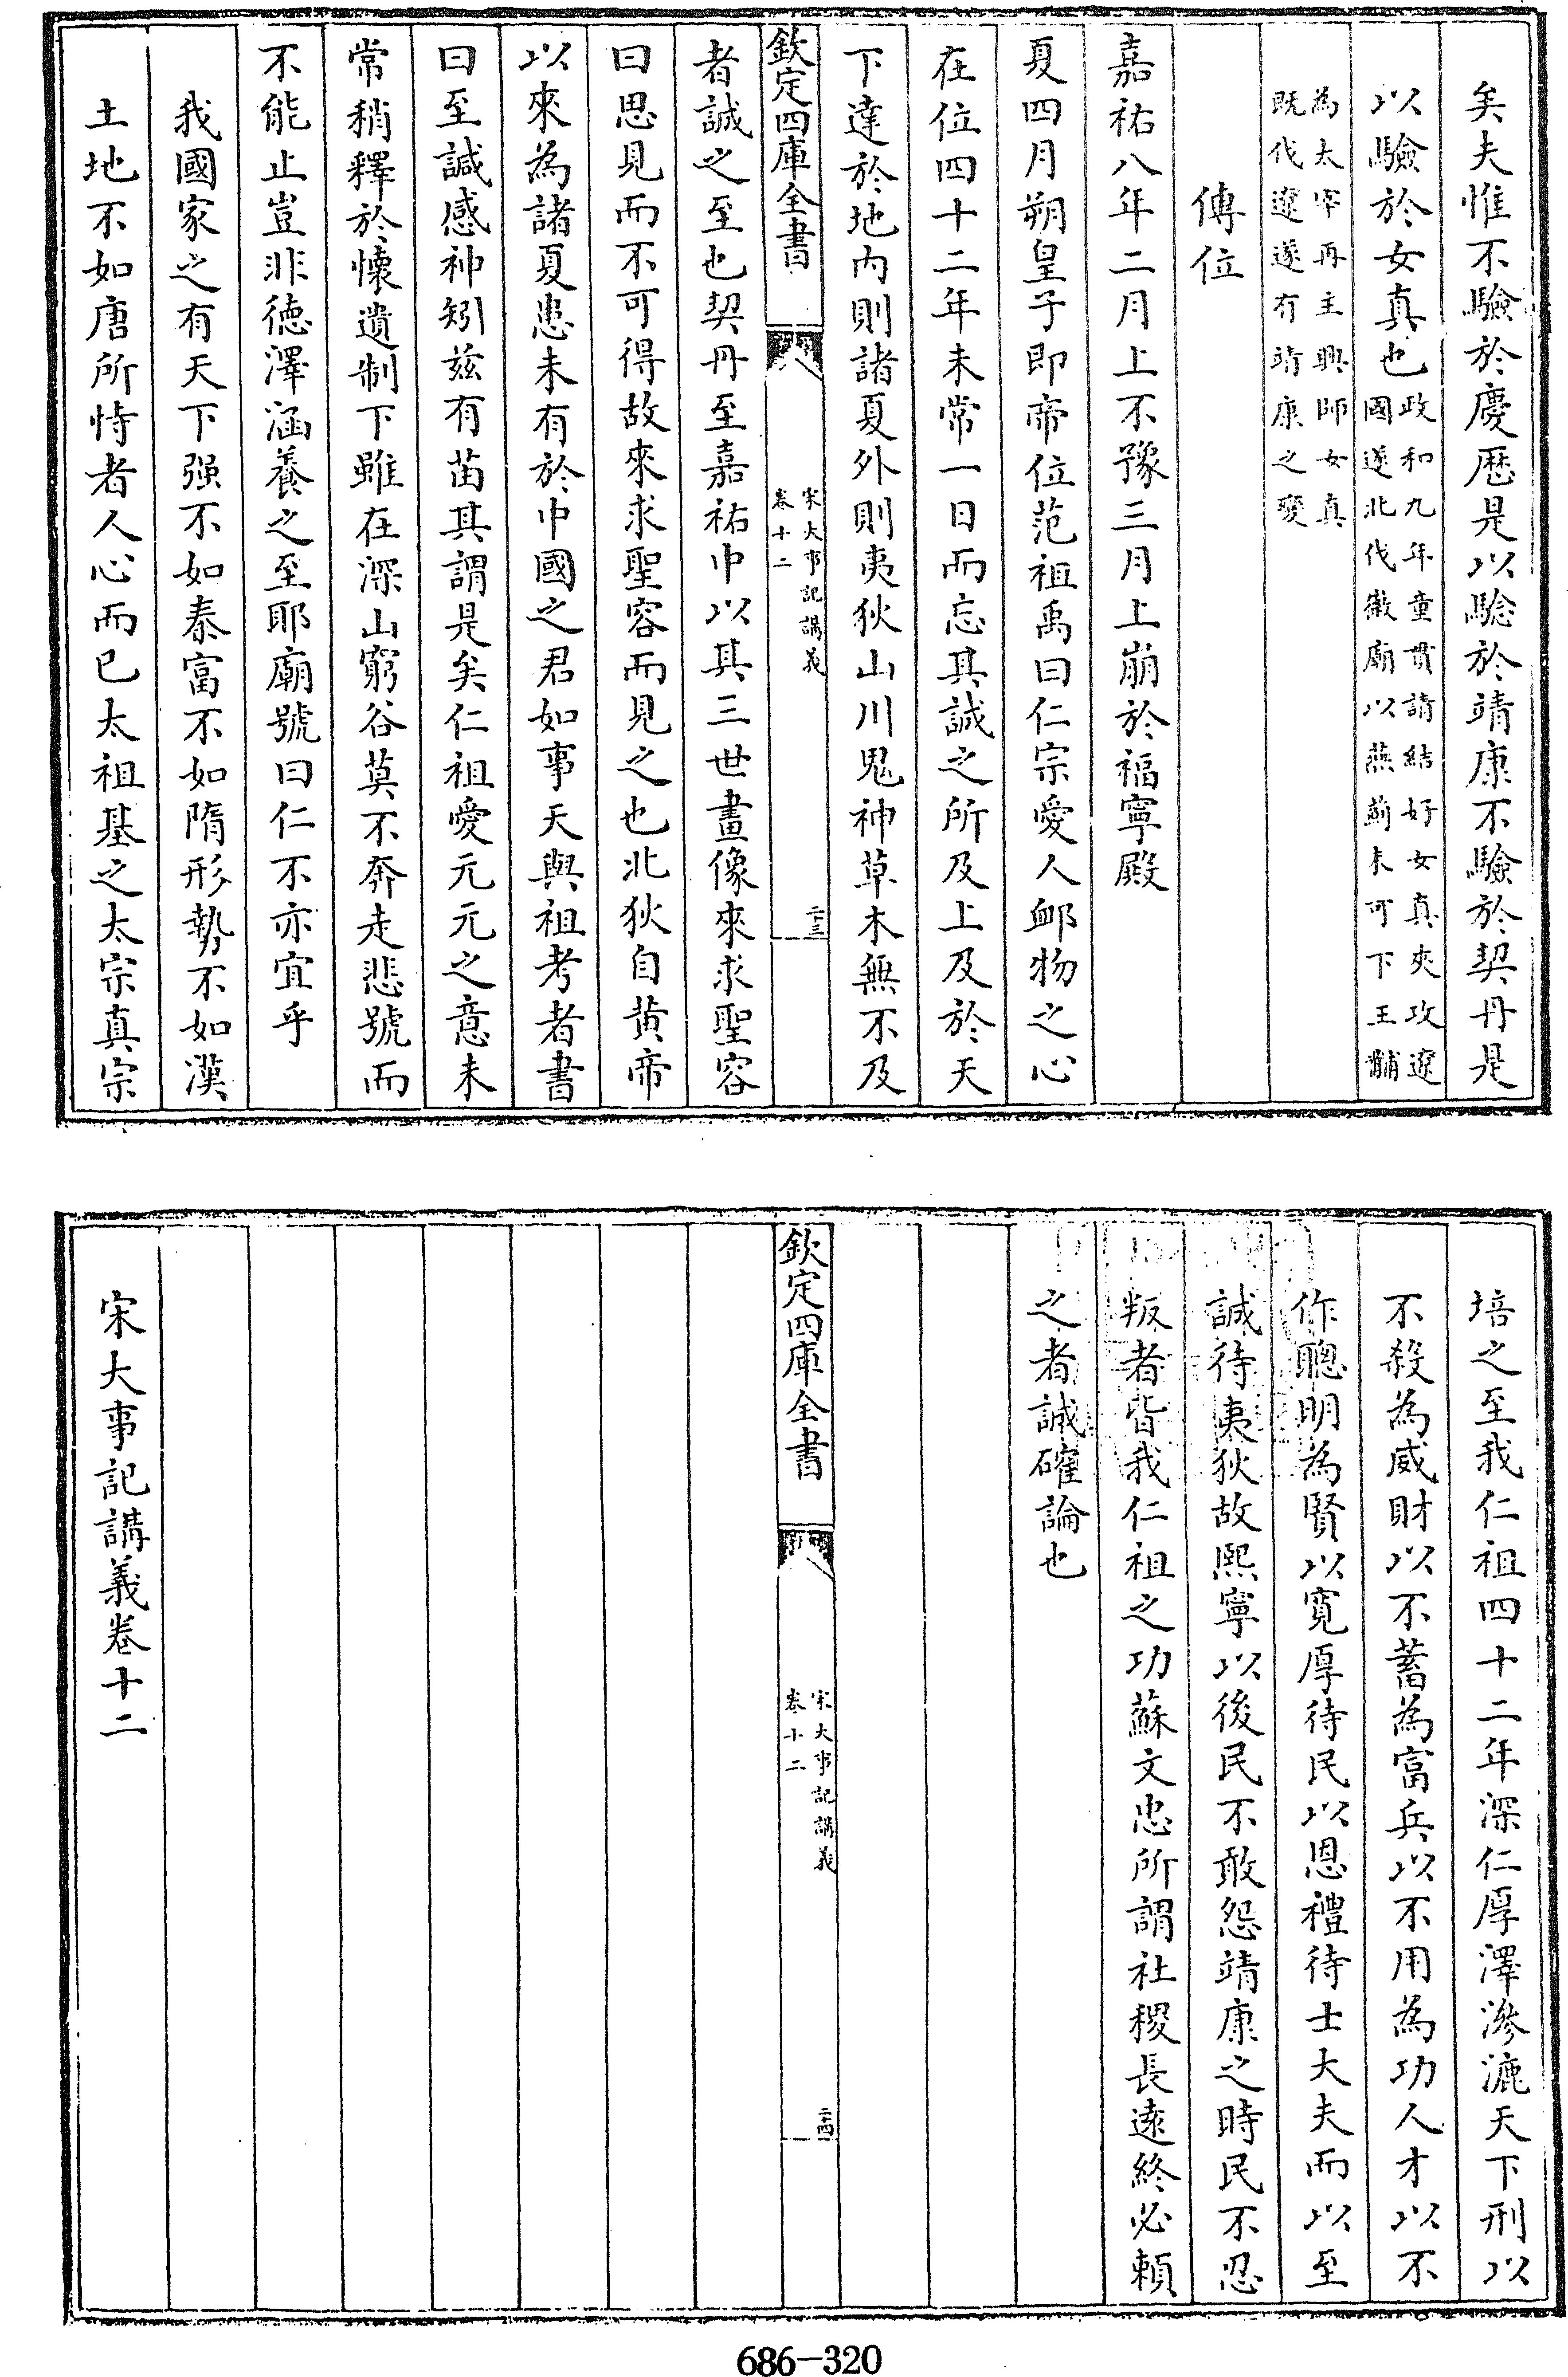 矣夫惟不驗於慶厯是以驗於靖康不驗於契丹是
以驗於女真也政和九年童貫請結好女真夾攻遼
國遂北伐徽廟以燕薊未可下王黼
為太宰再主興師女真
既伐遼遂有靖康之變
傳位
嘉祐八年二月上不豫三月上崩於福寧殿
夏四月朔皇子即帝位范祖禹曰仁宗愛人䘏物之心
在位四十二年未常一日而忘其誠之所及上及於天
下達於地内則諸夏外則夷狄山川鬼神草木無不及
欽定四庫全書
宋大事記講義
卷十二
二十三
者誠之至也契丹至嘉祐中以其三世畫像來求聖容
曰思見而不可得故來求聖容而見之也北狄自黄帝
以來為諸夏患未有於中國之君如事天與祖考者書
曰至諴感神矧兹有苗其謂是矣仁祖愛元元之意未
常稍釋於懷遺制下雖在深山窮谷莫不奔走悲號而
不能止豈非德澤涵養之至耶廟號曰仁不亦宜乎
我國家之有天下强不如秦富不如隋形勢不如漢
土地不如唐所恃者人心而已太祖基之太宗真宗
培之至我仁祖四十二年深仁厚澤滲漉天下刑以
不殺為威財以不蓄為富兵以不用為功人才以不
作聰明為賢以寛厚待民以恩禮待士大夫而以至
誠待夷狄故熙寧以後民不敢怨靖康之時民不忍
叛者皆我仁祖之功蘇文忠所謂社稷長遠終必賴
之者誠確論也
欽定四庫全書
宋大事記講義
卷十二
二十四
宋大事記講義卷十二
686-320